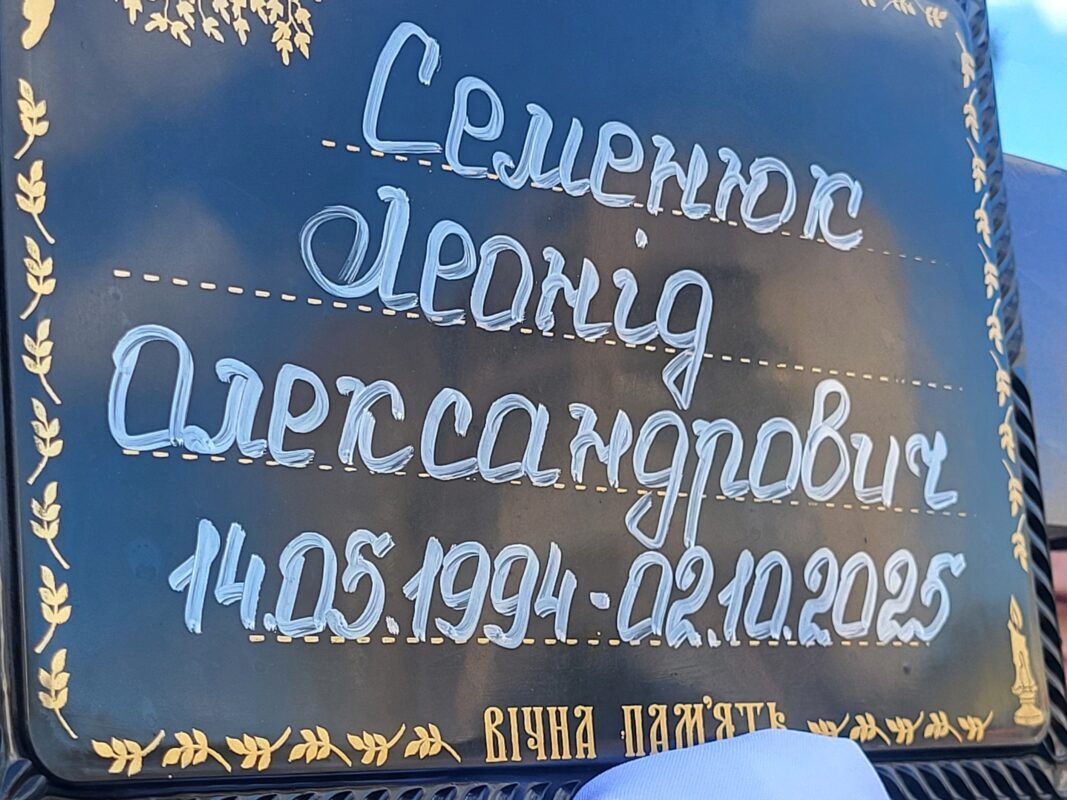 Семенюк
Леонід
Олександрович
14.05.1994-02.10.2025
ВІЧНА ПАМ'ЯТЬ